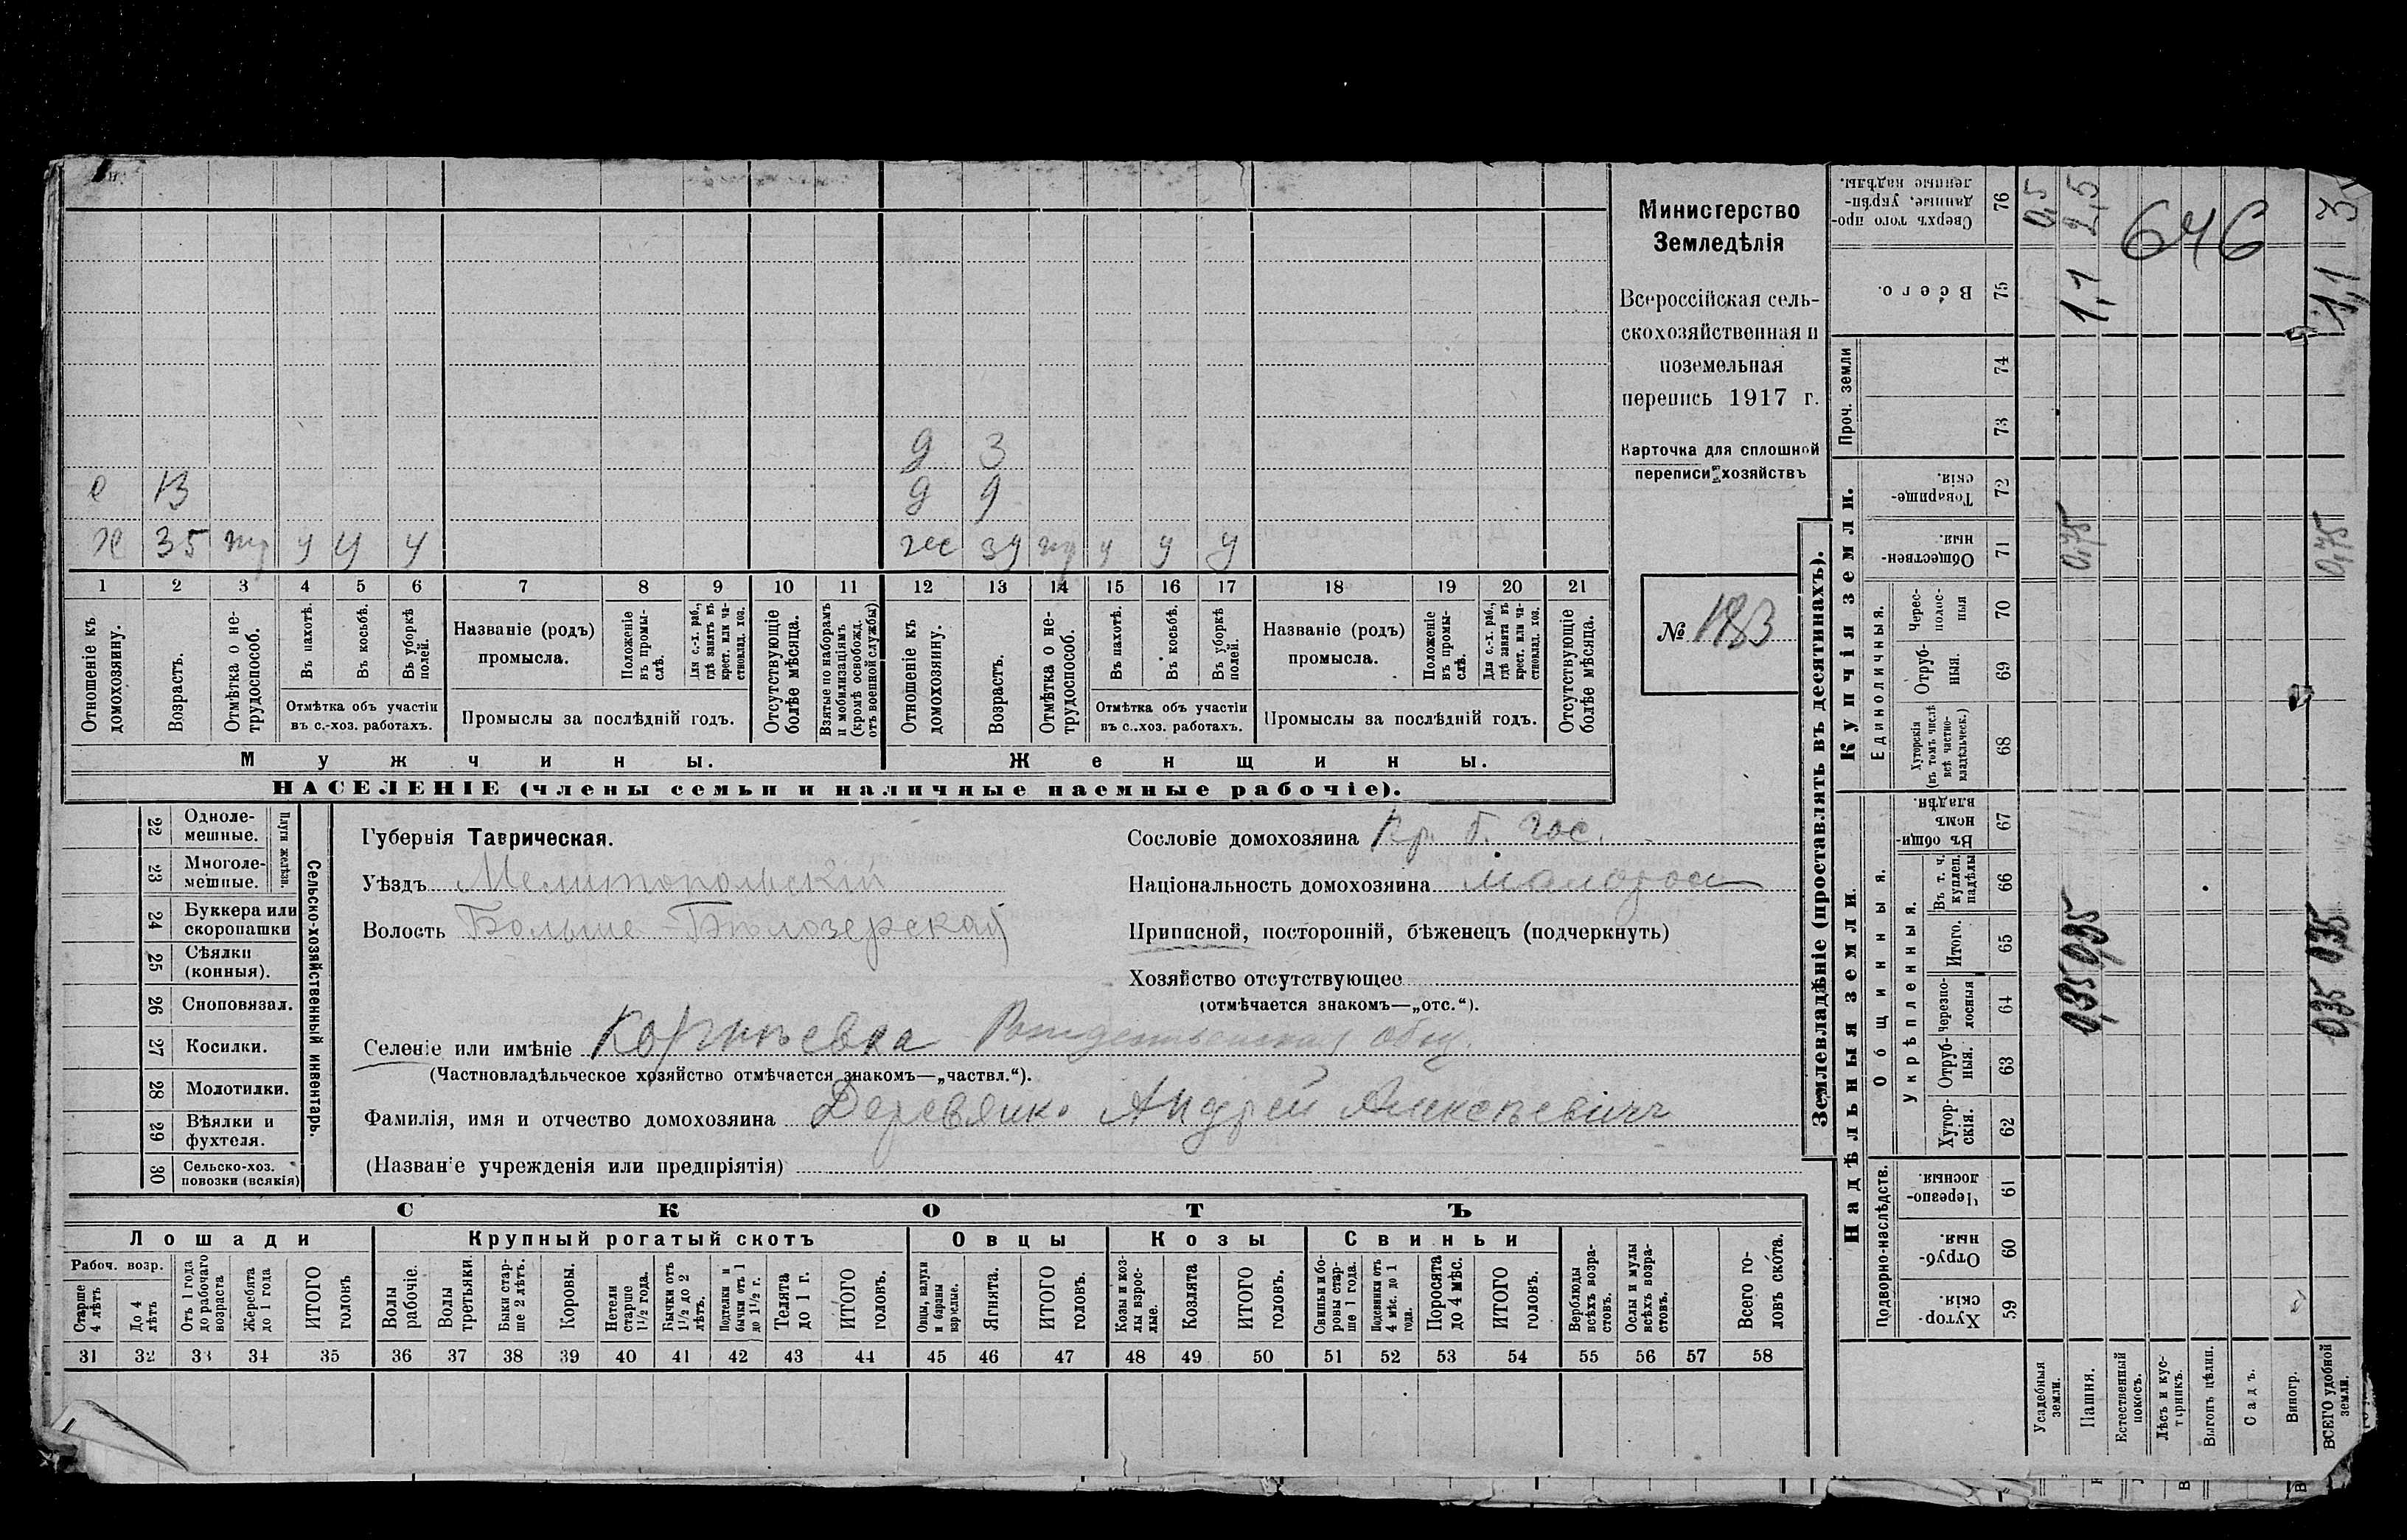 д 3
с 13 д 9
х 35 у у у ж 34 у у у
1 2 3 4 5 6 7 8 9 10 11 12 13 14 15 16 17 18 19 20 21
Отношеніе къ домохозяину.
Возрастъ.
Отмѣтка о не-трудоспособ.
Въ пахотѣ.
Въ косьбѣ.
Въ уборкѣ полей.
Отмѣтка объ участіи въ с.-хоз. работахъ.
Названіе (родъ) промысла.
Положеніе въ промы-слѣ.
Для с.-х. раб., гдѣ занятъ въ крест. или ча-стновлад. хоз.
Промыслы за послѣдній годъ.
Отсутствующіе болѣе мѣсяца.
Взятые по наборамъ и мобилизаціямъ (кромѣ освобожд. отъ военной службы)
Отношеніе къ домохозяину.
Возрастъ.
Отмѣтка о не-трудоспособ.
Въ пахотѣ.
Въ косьбѣ.
Въ уборкѣ полей.
Отмѣтка объ участіи въ с.-хоз. работахъ.
Названіе (родъ) промысла.
Положеніе въ промы-слѣ.
Для с.-х. раб., гдѣ занята въ крест. или ча-стновлад. хоз.
Промыслы за послѣдній годъ.
Отсутствующіе болѣе мѣсяца.
Мужчины. Женщины.
НАСЕЛЕНІЕ (члены семьи и наличные наемные рабочіе).
Министерство
Земледѣлія
Всероссійская сель-
скохозяйственная и
поземельная
перепись 1917 г.
Карточка для сплошной
переписи хозяйствъ
№ 183
22 Одноле-мешные.
23 Многоле-мешные.
Плуги желѣзн.
24 Буккера или скоропашки
25 Сѣялки (конныя).
26 Сноповязал.
27 Косилки.
28 Молотилки.
29 Вѣялки и фухтеля.
30 Сельско-хоз. повозки (всякія)
Сельско-хозяйственный инвентарь.
Губернія Таврическая.
Уѣздъ Мелитопольскій
Волость Больше-Бѣлозерская
Селеніе или имѣніе Корнѣевка Рождественская общ.
(Частновладѣльческое хозяйство отмѣчается знакомъ—„частвл.“).
Фамилія, имя и отчество домохозяина Деревянко Андрей Алексѣевичъ
(Названіе учрежденія или предпріятія)
Сословіе домохозяина Кр. б. гос.
Національность домохозяина малоросъ
Приписной, посторонній, бѣженецъ (подчеркнуть)
Хозяйство отсутствующее
(отмѣчается знакомъ—„отс.“).
СКОТЪ
Лошади Крупный рогатый скотъ Овцы Козы Свиньи
Рабоч. возр.
Старше 4 лѣтъ
До 4 лѣтъ
Отъ 1 года до рабочаго возраста
Жеребята до 1 года
ИТОГО головъ
Волы рабочіе.
Волы третьяки.
Быки стар-ше 2 лѣтъ.
Коровы.
Нетели старше 1½ года.
Бычки отъ 1½ до 2 лѣтъ.
Подтелки и бычки отъ 1 до 1½ г.
Телята до 1 г.
ИТОГО головъ.
Овцы, валухи и бараны взрослые.
Ягнята.
ИТОГО головъ.
Козы и коз-лы взрос-лые.
Козлята
ИТОГО головъ.
Свиньи и бо-ровы стар-ше 1 года.
Подсвинки отъ 4 мѣс. до 1 года.
Поросята до 4 мѣс.
ИТОГО головъ.
Верблюды всѣхъ возра-стовъ.
Ослы и мулы всѣхъ возра-стовъ.
Всего го-ловъ скота.
31 32 33 34 35 36 37 38 39 40 41 42 43 44 45 46 47 48 49 50 51 52 53 54 55 56 57 58
Землевладѣніе (проставлять въ десятинахъ).
Надѣльныя земли.
Купчія земли.
Проч. земли
Подворно-наслѣдств.
Общинныя.
Укрѣпленныя.
Единоличныя.
Хутор-скія. 59
Отруб-ныя. 60
Черезпо-лосныя 61
Хутор-скія. 62
Отруб-ныя. 63
Черезпо-лосныя 64
Итого. 65
Въ т. ч. куплен. надѣлы 66
Въ общи-номъ владѣн. 67
Хуторскія (въ томъ числѣ всѣ частно-владѣльческ.) 68
Отруб-ныя. 69
Черес-полос-ныя 70
Обществен-ныя. 71
Товарище-скія. 72
73
74
Всего. 75
Сверхъ того про-данные, укрѣп-ленные надѣлы. 76
Усадебныя земли. 0,5
Пашня. 0,35 0,35 0,75 1,1 2,5
Естественный покосъ.
Лѣсъ и кус-тарникъ.
Выгонъ цѣлин.
Садъ.
Виногр.
ВСЕГО удобной земли. 0,35 0,35 0,75 1,1 3
646